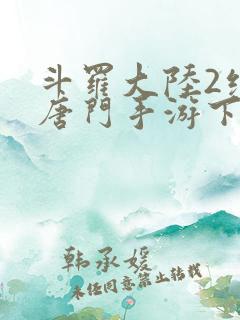 斗羅大陸2
唐門手游下
韩承媛
未经同意禁止转载